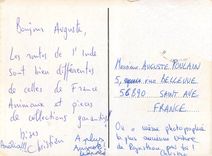 Bonjour Auguste,
Les routes de l'Inde
sont bien différentes
de celles de France
Animaux et pièces
de collections garanties !
bises
Christian
Monsieur AUGUSTE POULAIN
5, rue BELLEVUE
56890 SAINT AVE
FRANCE
On a même photographié
la plus ancienne voiture
du Rajasthan, pas toi !